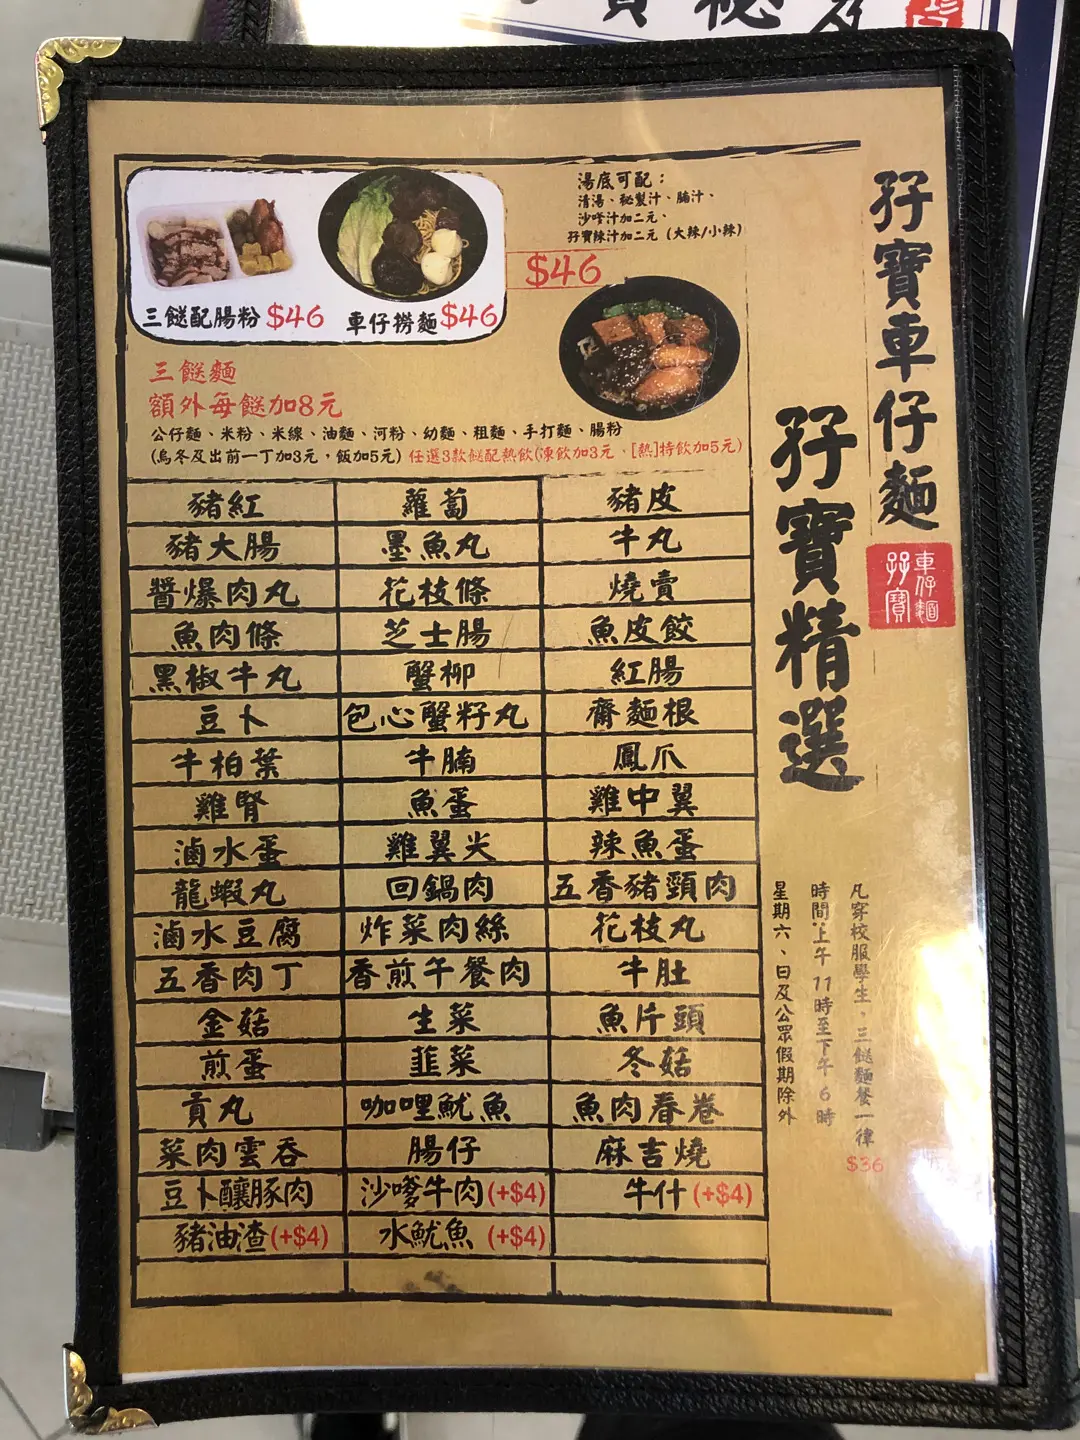 孖寶車仔麵
孖寶精選
車仔麵
孖寶
湯底可配：
清湯、秘製汁、腩汁、
沙嗲汁加二元、
孖寶辣汁加二元（大辣/小辣）
$46
三餸配腸粉 $46
車仔撈麵 $46
三餸麵
額外每餸加8元
公仔麵、米粉、米線、油麵、河粉、幼麵、粗麵、手打麵、腸粉
(烏冬及出前一丁加3元，飯加5元) 任選3款餸配熱飲(凍飲加3元，[熱]特飲加5元)
豬紅 蘿蔔 豬皮
豬大腸 墨魚丸 牛丸
醬爆肉丸 花枝條 燒賣
魚肉條 芝士腸 魚皮餃
黑椒牛丸 蟹柳 紅腸
豆卜 包心蟹籽丸 齋麵根
牛柏葉 牛腩 鳳爪
雞腎 魚蛋 雞中翼
滷水蛋 雞翼尖 辣魚蛋
龍蝦丸 回鍋肉 五香豬頸肉
滷水豆腐 炸菜肉絲 花枝丸
五香肉丁 香煎午餐肉 牛肚
金菇 生菜 魚片頭
煎蛋 韮菜 冬菇
貢丸 咖哩魷魚 魚肉春卷
菜肉雲吞 腸仔 麻吉燒
豆卜釀豚肉 沙嗲牛肉(+$4) 牛什(+$4)
豬油渣(+$4) 水魷魚 (+$4)
凡穿校服學生，三餸麵餐一律
$36
時間：上午11時至下午6時
星期六、日及公眾假期除外